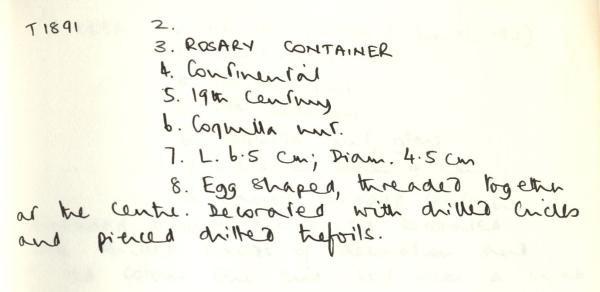 T1891 2.
3. ROSARY CONTAINER
4. Continental
5. 19th Century
6. Coquilla nut.
7. L. 6.5 cm; Diam. 4.5 cm
8. Egg shaped, threaded together
at the centre. Decorated with drilled circles
and pierced drilled trefoils.